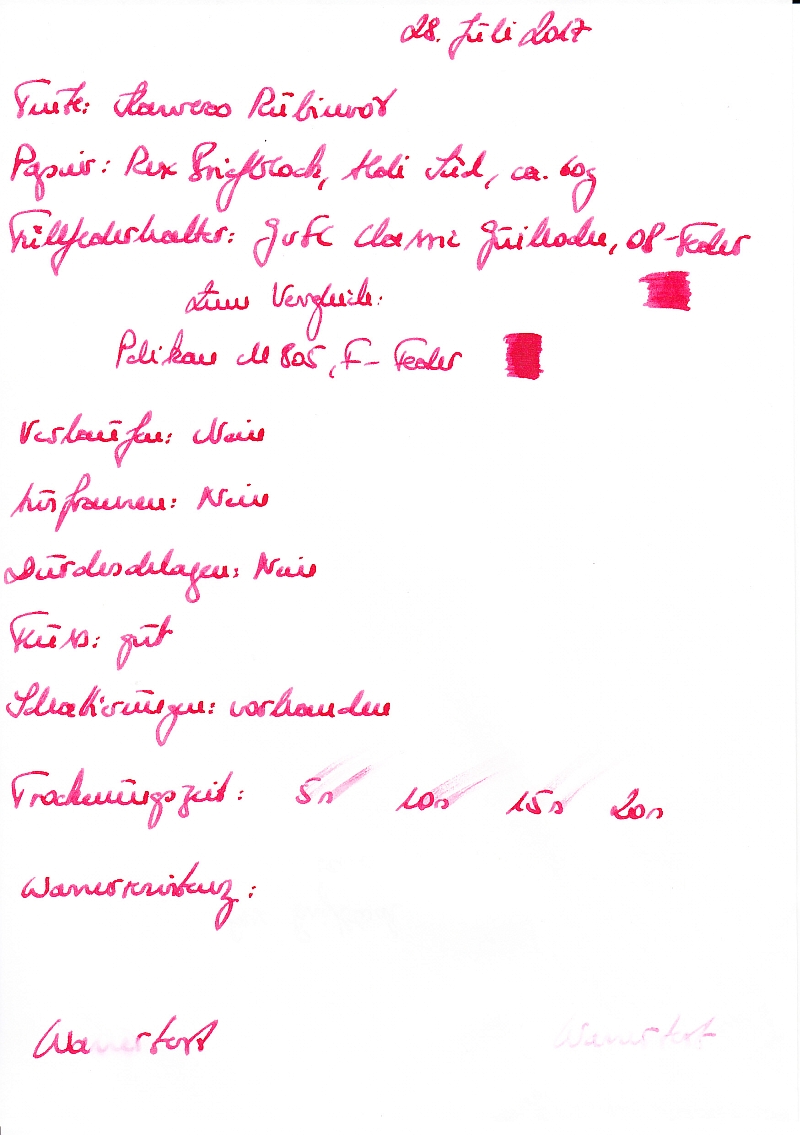 28. Juli 2017
Tinte: Kaweco Rubinrot
Papier: Rex Briefblock, Aldi Süd, ca. 60g
Füllfederhalter: GvFC Classic Guilloche, OB-Feder
Zum Vergleich:
Pelikan M 805, F-Feder
Verlaufen: Nein
Ausfransen: Nein
Durchschlagen: Nein
Fluss: gut
Schattierungen: vorhanden
Trocknungszeit: 5s 10s 15s 20s
Wasserresistenz:
Wassertest Wassertest